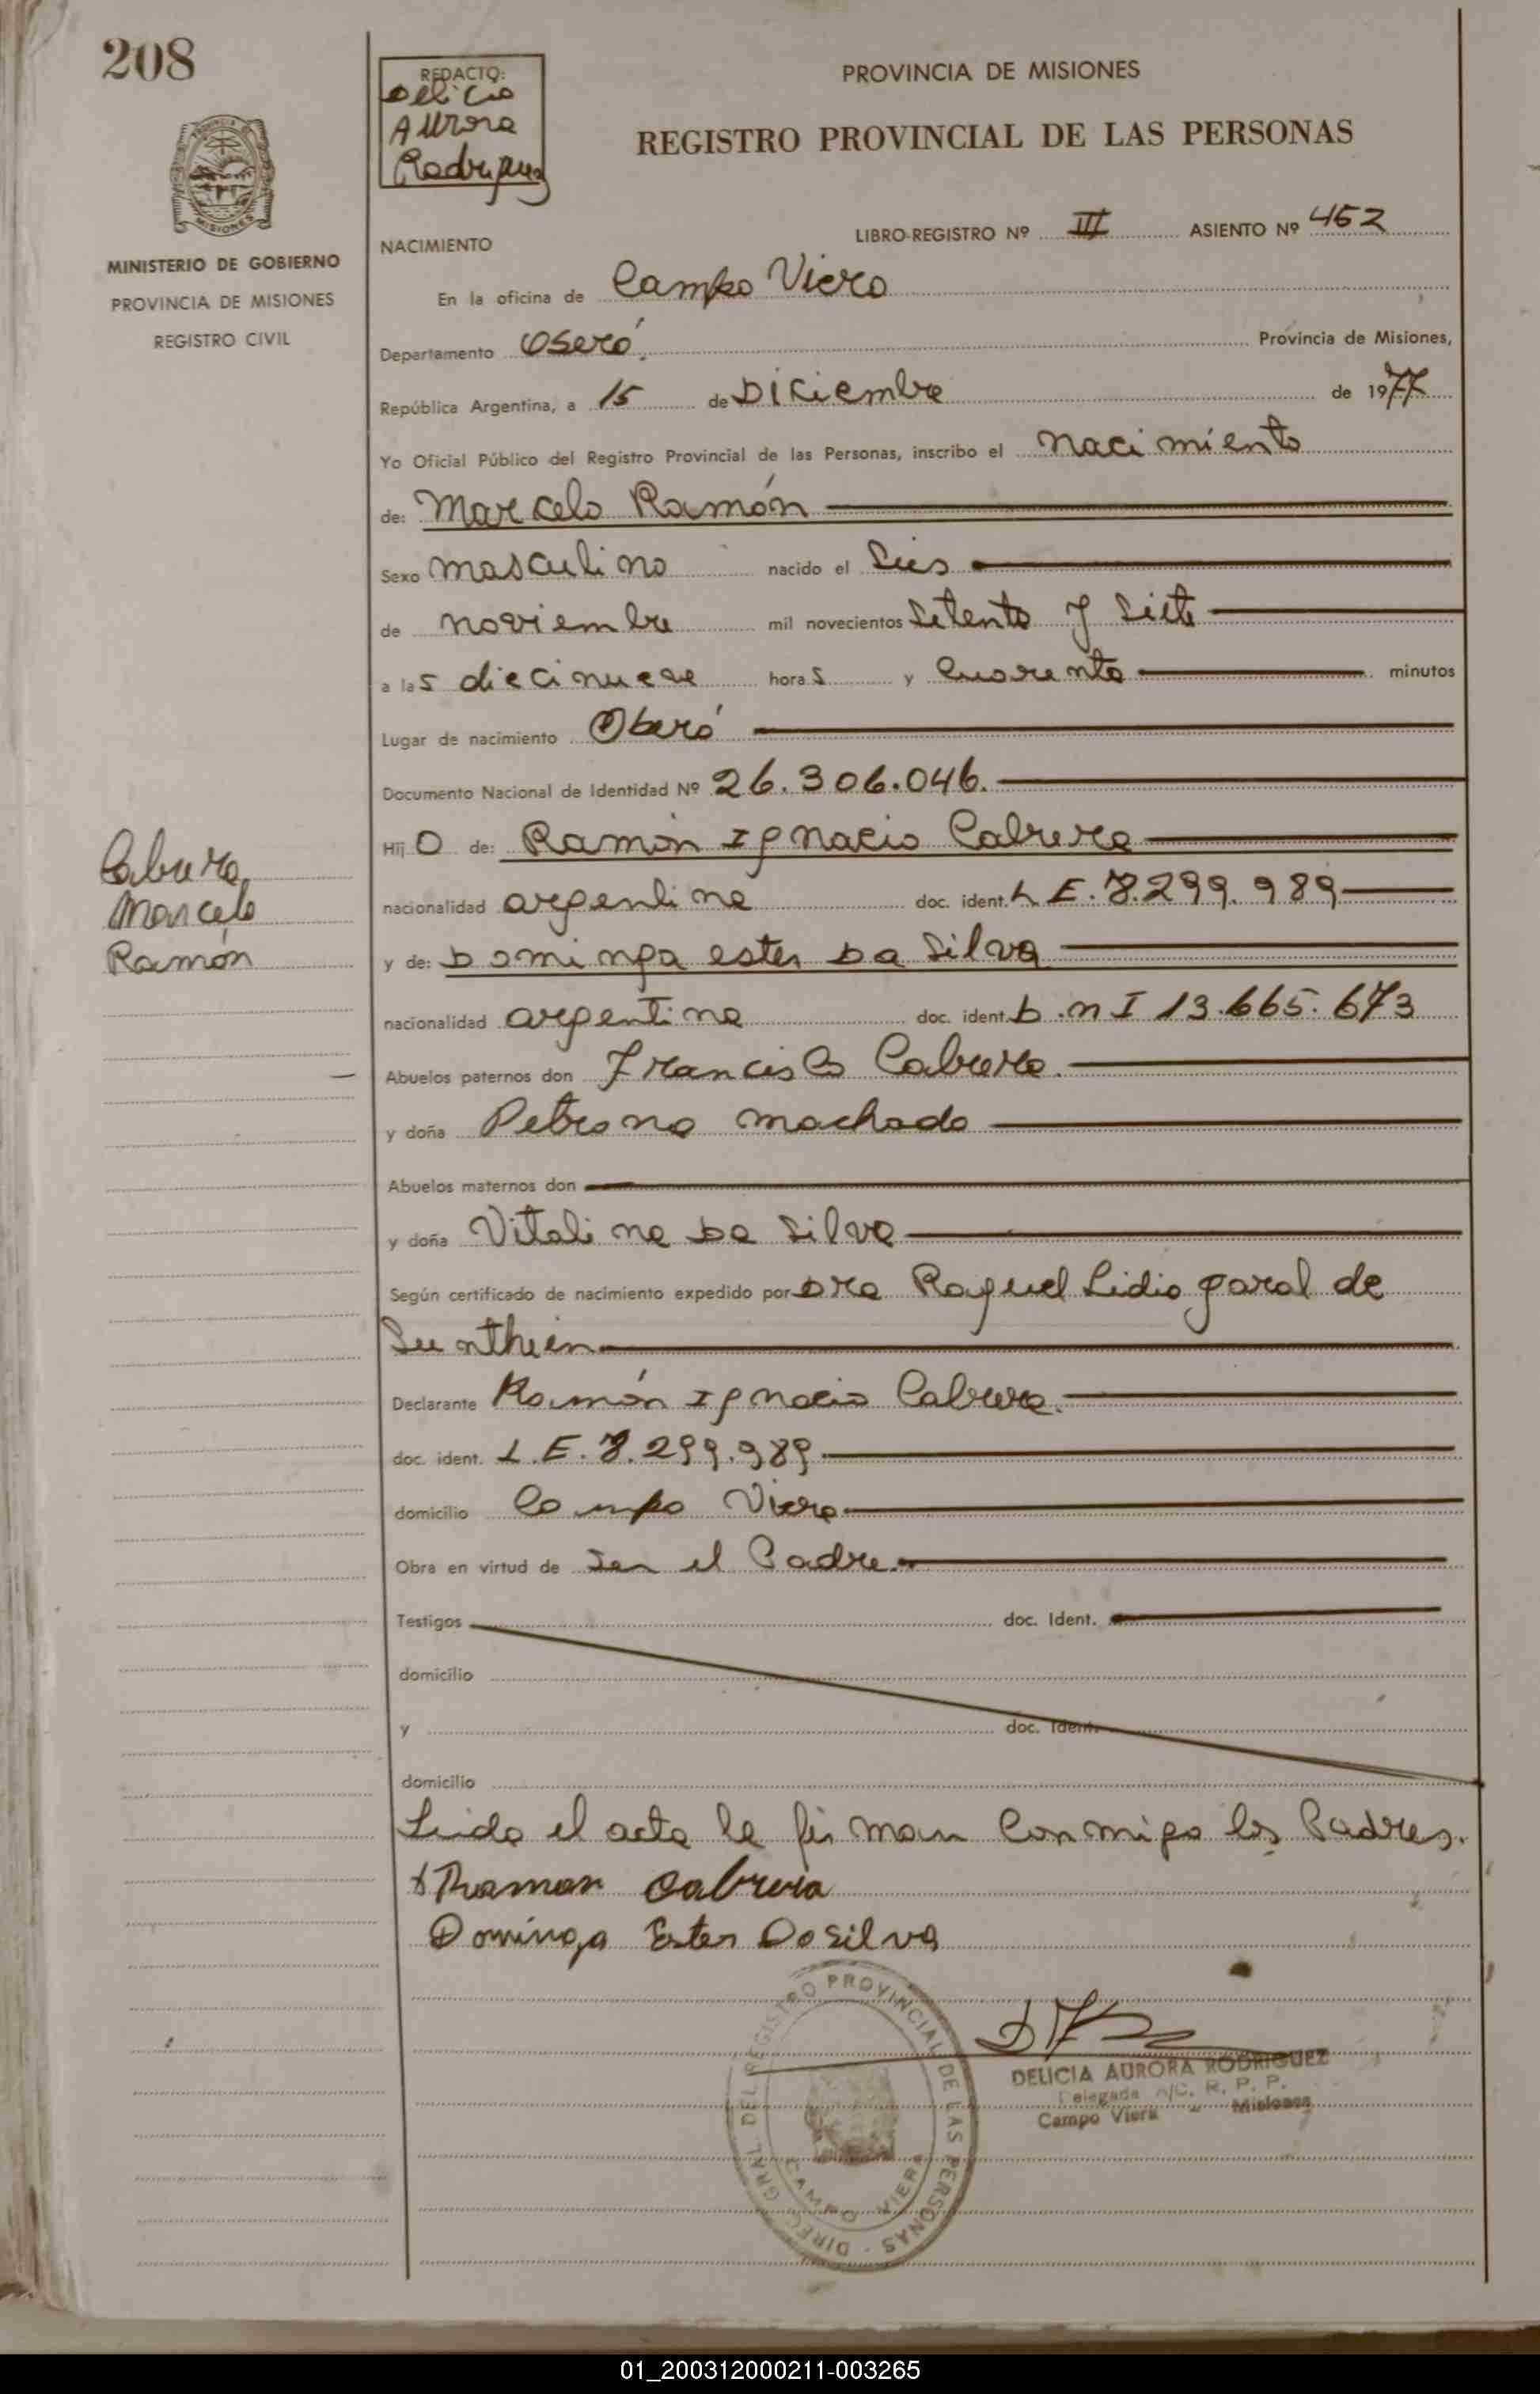 208
REDACTO:
Delicia
Aurora
Rodriguez
PROVINCIA DE MISIONES
REGISTRO PROVINCIAL DE LAS PERSONAS
MINISTERIO DE GOBIERNO
PROVINCIA DE MISIONES
REGISTRO CIVIL
LIBRO-REGISTRO Nº III ASIENTO Nº 452
NACIMIENTO
En la oficina de Campo Viera
Departamento Oberá. Provincia de Misiones,
República Argentina, a 15 de Diciembre de 1977
Yo Oficial Público del Registro Provincial de las Personas, inscribo el nacimiento
de: Marcelo Ramón
Sexo masculino nacido el Seis
de noviembre mil novecientos Setenta y Siete
a las diecinueve horas y Cuarenta minutos
Lugar de nacimiento Oberá
Documento Nacional de Identidad Nº 26.306.046.
Hijo de: Ramón Ignacio Cabrera
Cabrera
Marcelo
Ramón
nacionalidad argentina doc. ident. L E. 8.299.989
y de: Dominga ester Da Silva
nacionalidad argentina doc. ident. D.n I 13.665.673
Abuelos paternos don Francisco Cabrera.
y doña Petrona machado
Abuelos maternos don
y doña Vitalina Da Silva
Según certificado de nacimiento expedido por Dra Raquel Lidia garal de
Sunthein
Declarante Ramón Ignacio Cabrera.
doc. ident. L.E. 8.299.989
domicilio Campo Viera
Obra en virtud de Ser el Padre.
Testigos doc. Ident.
domicilio
y doc. Ident.
domicilio
Leida el acta la firman Conmigo los Padres.
Ramon Cabrera
Dominga Ester Dasilva
DIREC. GRAL. DEL REGISTRO PROVINCIAL DE LAS PERSONAS
CAMPO VIERA
DELICIA AURORA RODRIGUEZ
Delegada A/C. R. P. P.
Campo Viera - Misiones
01_200312000211-003265